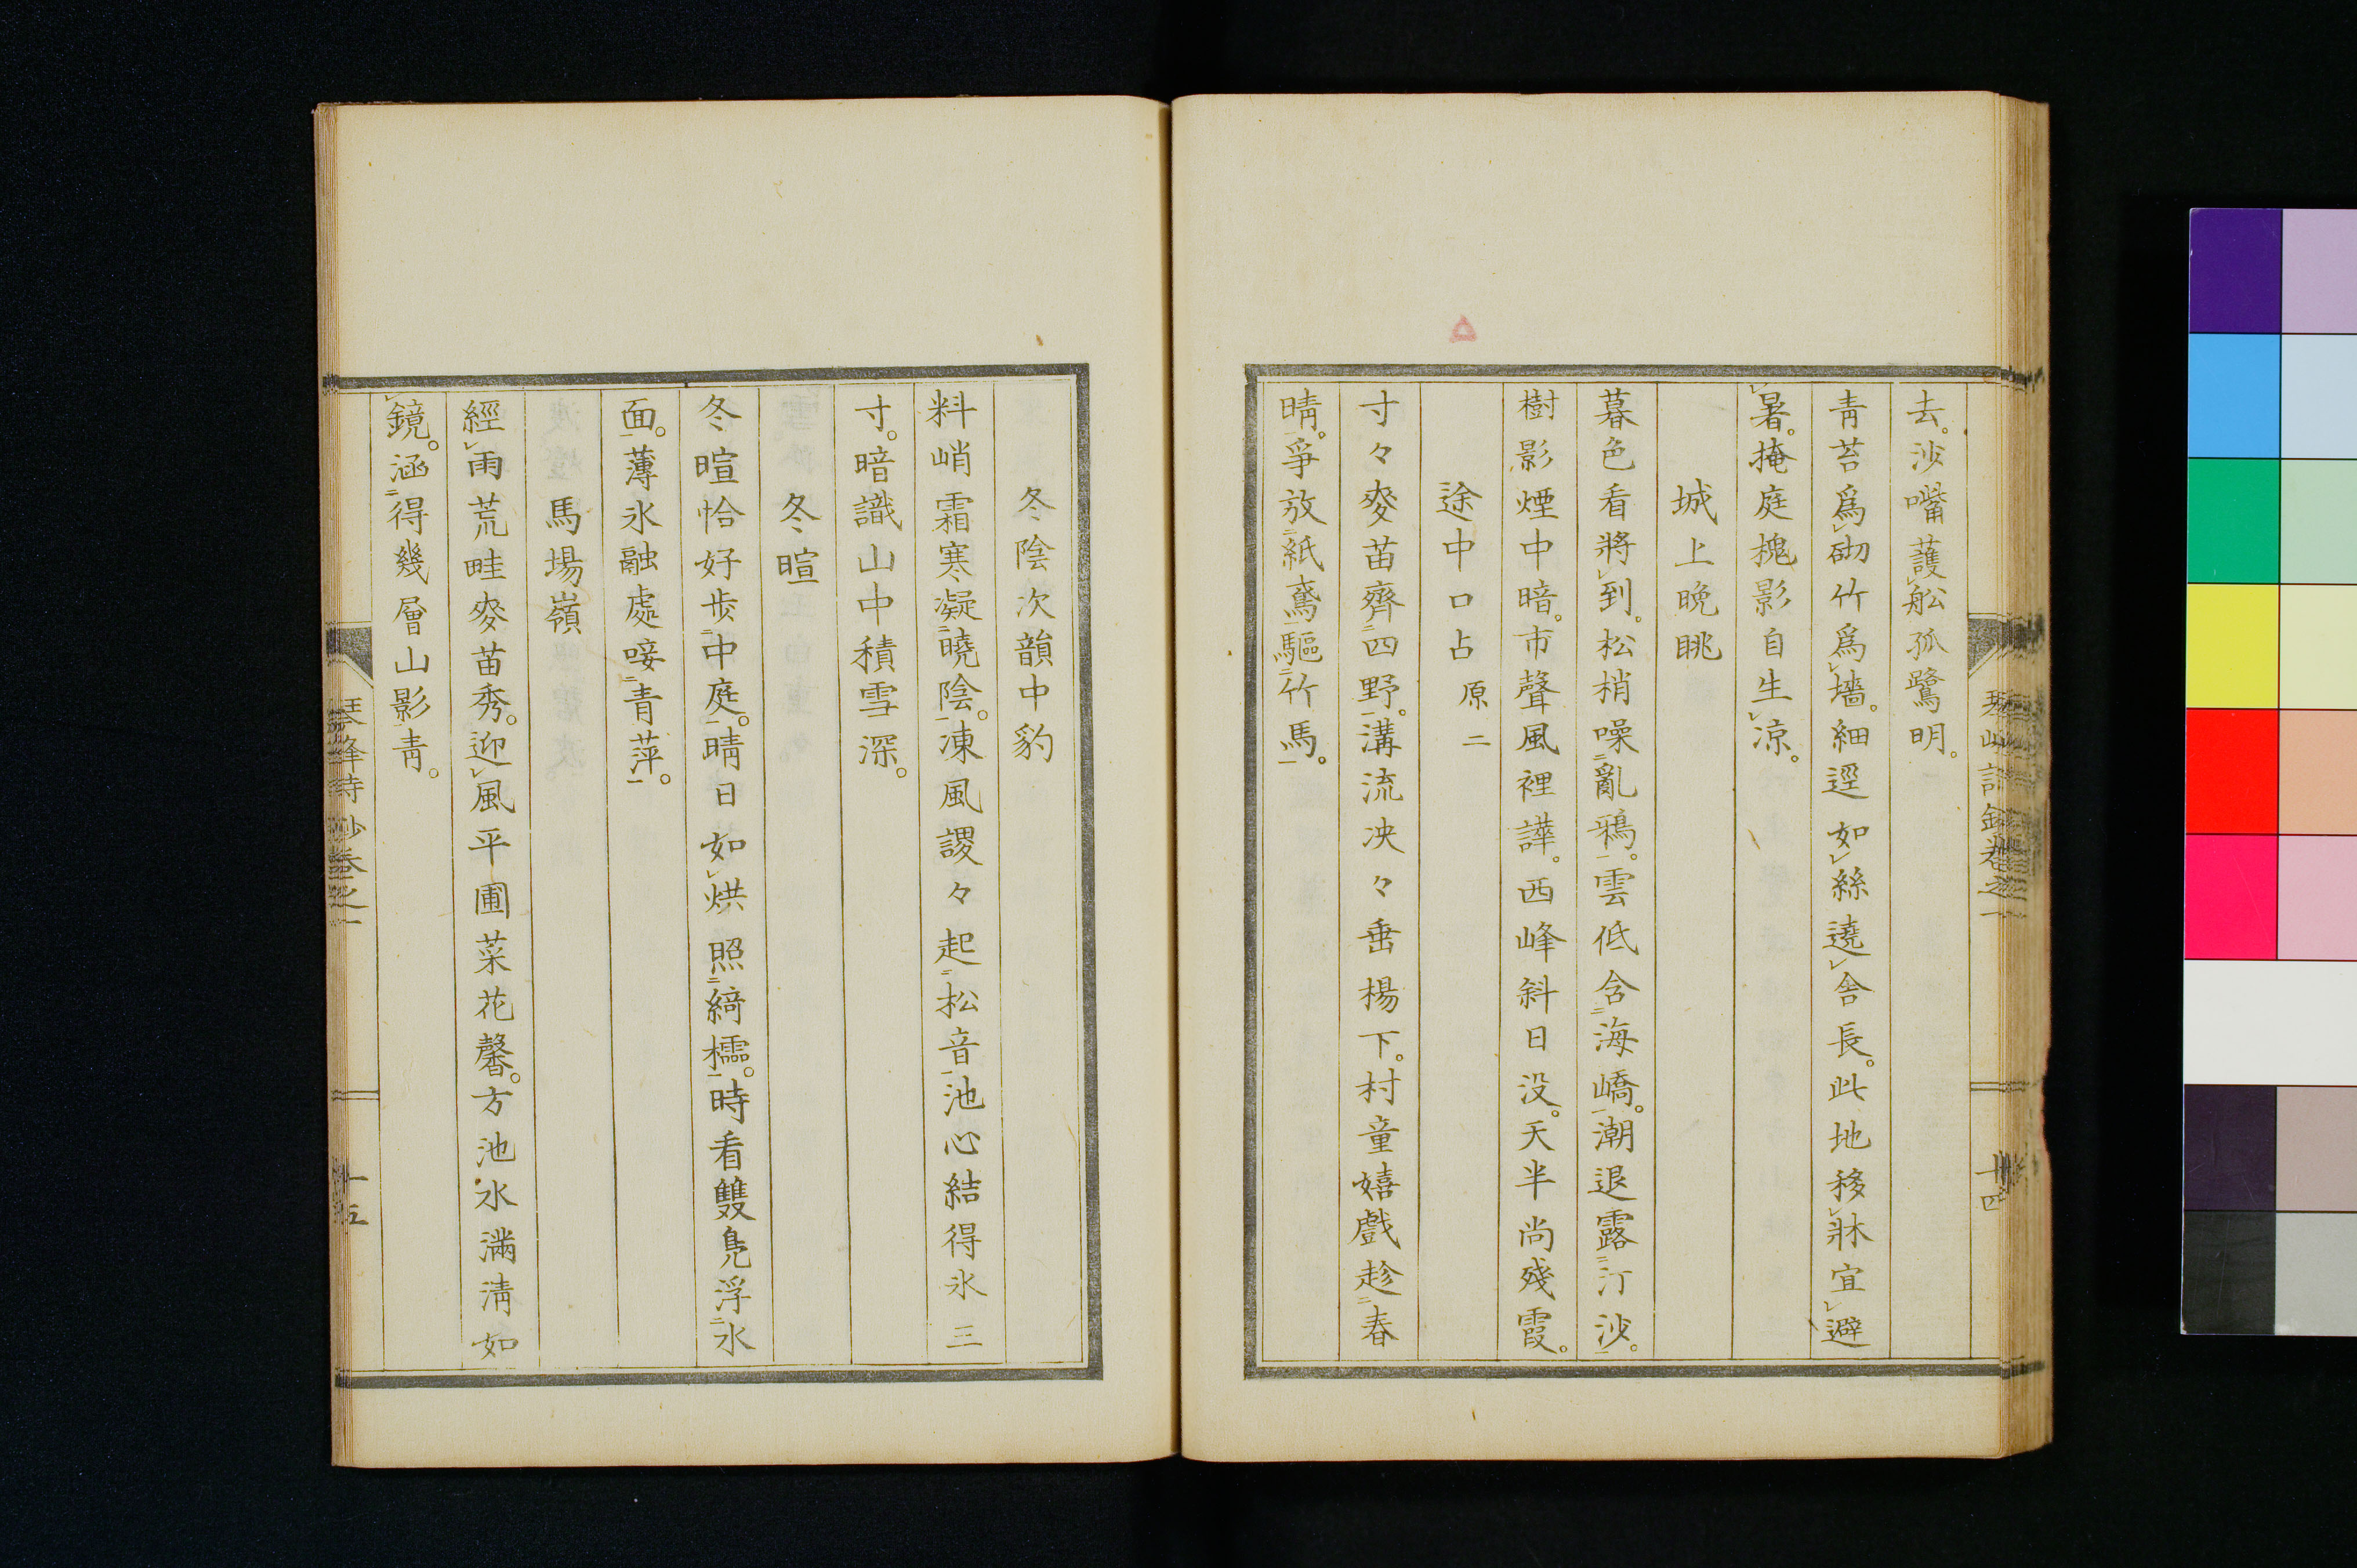 去。沙嘴護舩孤鷺明。
青苔爲砌竹爲墻。細逕如絲遶舎長。此地移牀宜避
暑。掩庭槐影自生凉。
城上晩眺
暮色看將到。松梢噪亂鴉。雲低含海嶠。潮退露汀沙。
樹影煙中暗。市聲風裡譁。西峰斜日没。天半尚殘霞。
途中口占 原二
寸々麥苗齊四野。溝流泱々垂楊下。村童嬉戲趁春
晴。爭放紙鳶驅竹馬。
冬陰次韻中豹
料峭霜寒凝曉陰。凍風謖々起松音池心結得氷三
寸。暗識山中積雪深。
冬暄
冬暄恰好步中庭。晴日如烘照綺櫺。時看雙鳧浮水
面。薄氷融處唼青萍。
馬場嶺
經雨荒畦麥苗秀。迎風平圃菜花馨。方池水滿淸如
鏡。涵得幾層山影靑。
琴峰詩鈔卷之一
十五